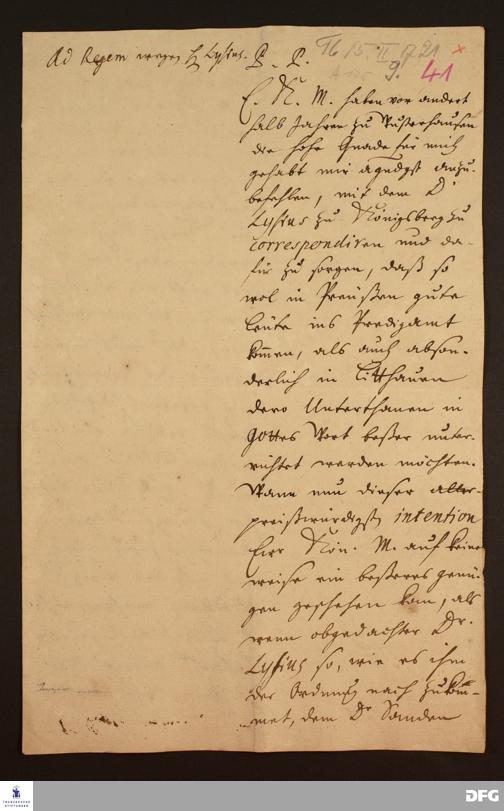 Ad Regem wegen H Lysius. P. P.
16/5. II 1721
9. 41
E. K. M. haben vor andert
halb Jahren zu Wusterhausen
die hohe Gnade für mich
gehabt mir agndgst anzu-
befehlen, mit dem D.
Lysius zu Königsberg zu
correspondiren und da-
für zu sorgen, daß so
wol in Preußen gute
Leute ins Predigamt
kommen, als auch abson-
derlich in Litthauen
dero Unterthanen in
Gottes Wort beßer unter-
richtet werden möchten.
Wann nun dieser aller-
preißwürdigst intention
Ewr Kön. M. auf keine
weise ein beßeres genü-
gen geschehen kan, als
wenn obgedachter Dr.
Lysius so, wie es ihm
der Ordnung nach zukom-
met, dem Dr Sanden
FRANCKESCHE STIFTUNGEN
DFG